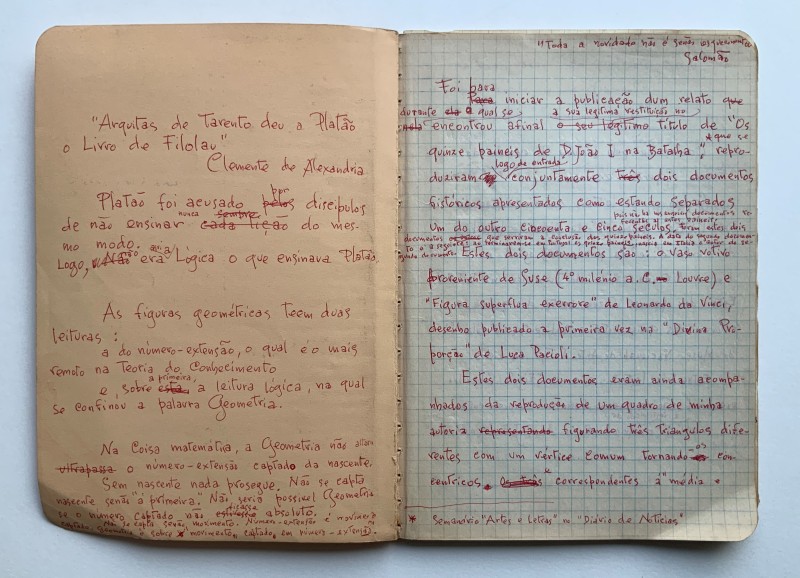 "Arquitas de Tarento deu a Platão
o Livro de Filolau"
Clemente de Alexandria
Platão foi acusado pelos por discípulos
de não ensinar nunca cada lição sempre do mes-
mo modo.
Logo, Não era a Lógica o que ensinava Platão.
As figuras geométricas teem duas
leituras:
a do número-extensão, o qual é o mais
remoto na Teoria do Conhecimento
e, sobre esta, a primeira, a leitura lógica, na qual
se confinou a palavra Geometria.
Na Coisa matemática, a Geometria não altera
ultrapassa o número-extensão captado da nascente.
Sem nascente nada prosegue. Não se capta
nascente senão "a primeira". Não seria possível Geometria
se o número captado não estivesse absoluto.
Não se capta senão movimento. Número-extensão é movimento
captado. Geometria é sobre movimento, captado, em número-extensão.
"Toda a novidade não é senão esquecimento
Salomão
Foi para
Para iniciar a publicação dum relato que
durante o qual se a sua legítima restituição no
encontrou afinal o seu legítimo título de "Os
quinze paineis de D. João I na Batalha", * que se repro-
logo de entrada
duziram conjuntamente três dois documentos
históricos apresentados como estando separados
um do outro cincoenta e cinco séculos. Foram estes dois
documentos que serviram a conclusão dos quinze paineis.
Estes dois documentos são: o Vaso votivo
proveniente de Suse (4º milénio a.C. – Louvre) e
"Figura superflua exerrore" de Leonardo da Vinci,
desenho publicado a primeira vez na "Divina Pro-
porção" de Luca Pacioli.
Estes dois documentos eram ainda acompa-
nhados da reprodução de um quadro de minha
autoria representando figurando três triangulos dife-
rentes com um vértice comum tornando-os con-
centricos, e correspondentes à "média e
* Semanário "Artes e Letras" no "Diário de Notícias"